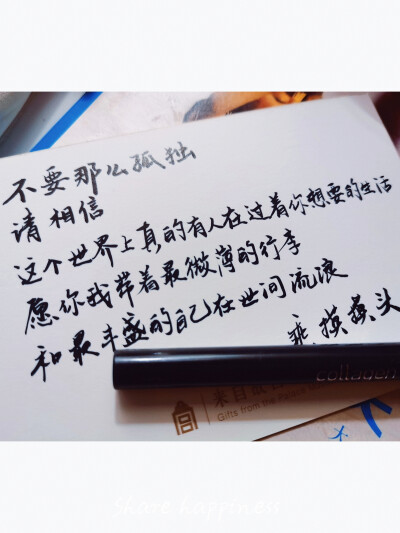 不要那么孤独
请相信
这个世界上真的有人在过着你想要的生活
愿你我带着最微薄的行李
和最丰盛的自己在世间流浪
乖 摸摸头
collagen
来自
Gifts from the Palace
share happiness